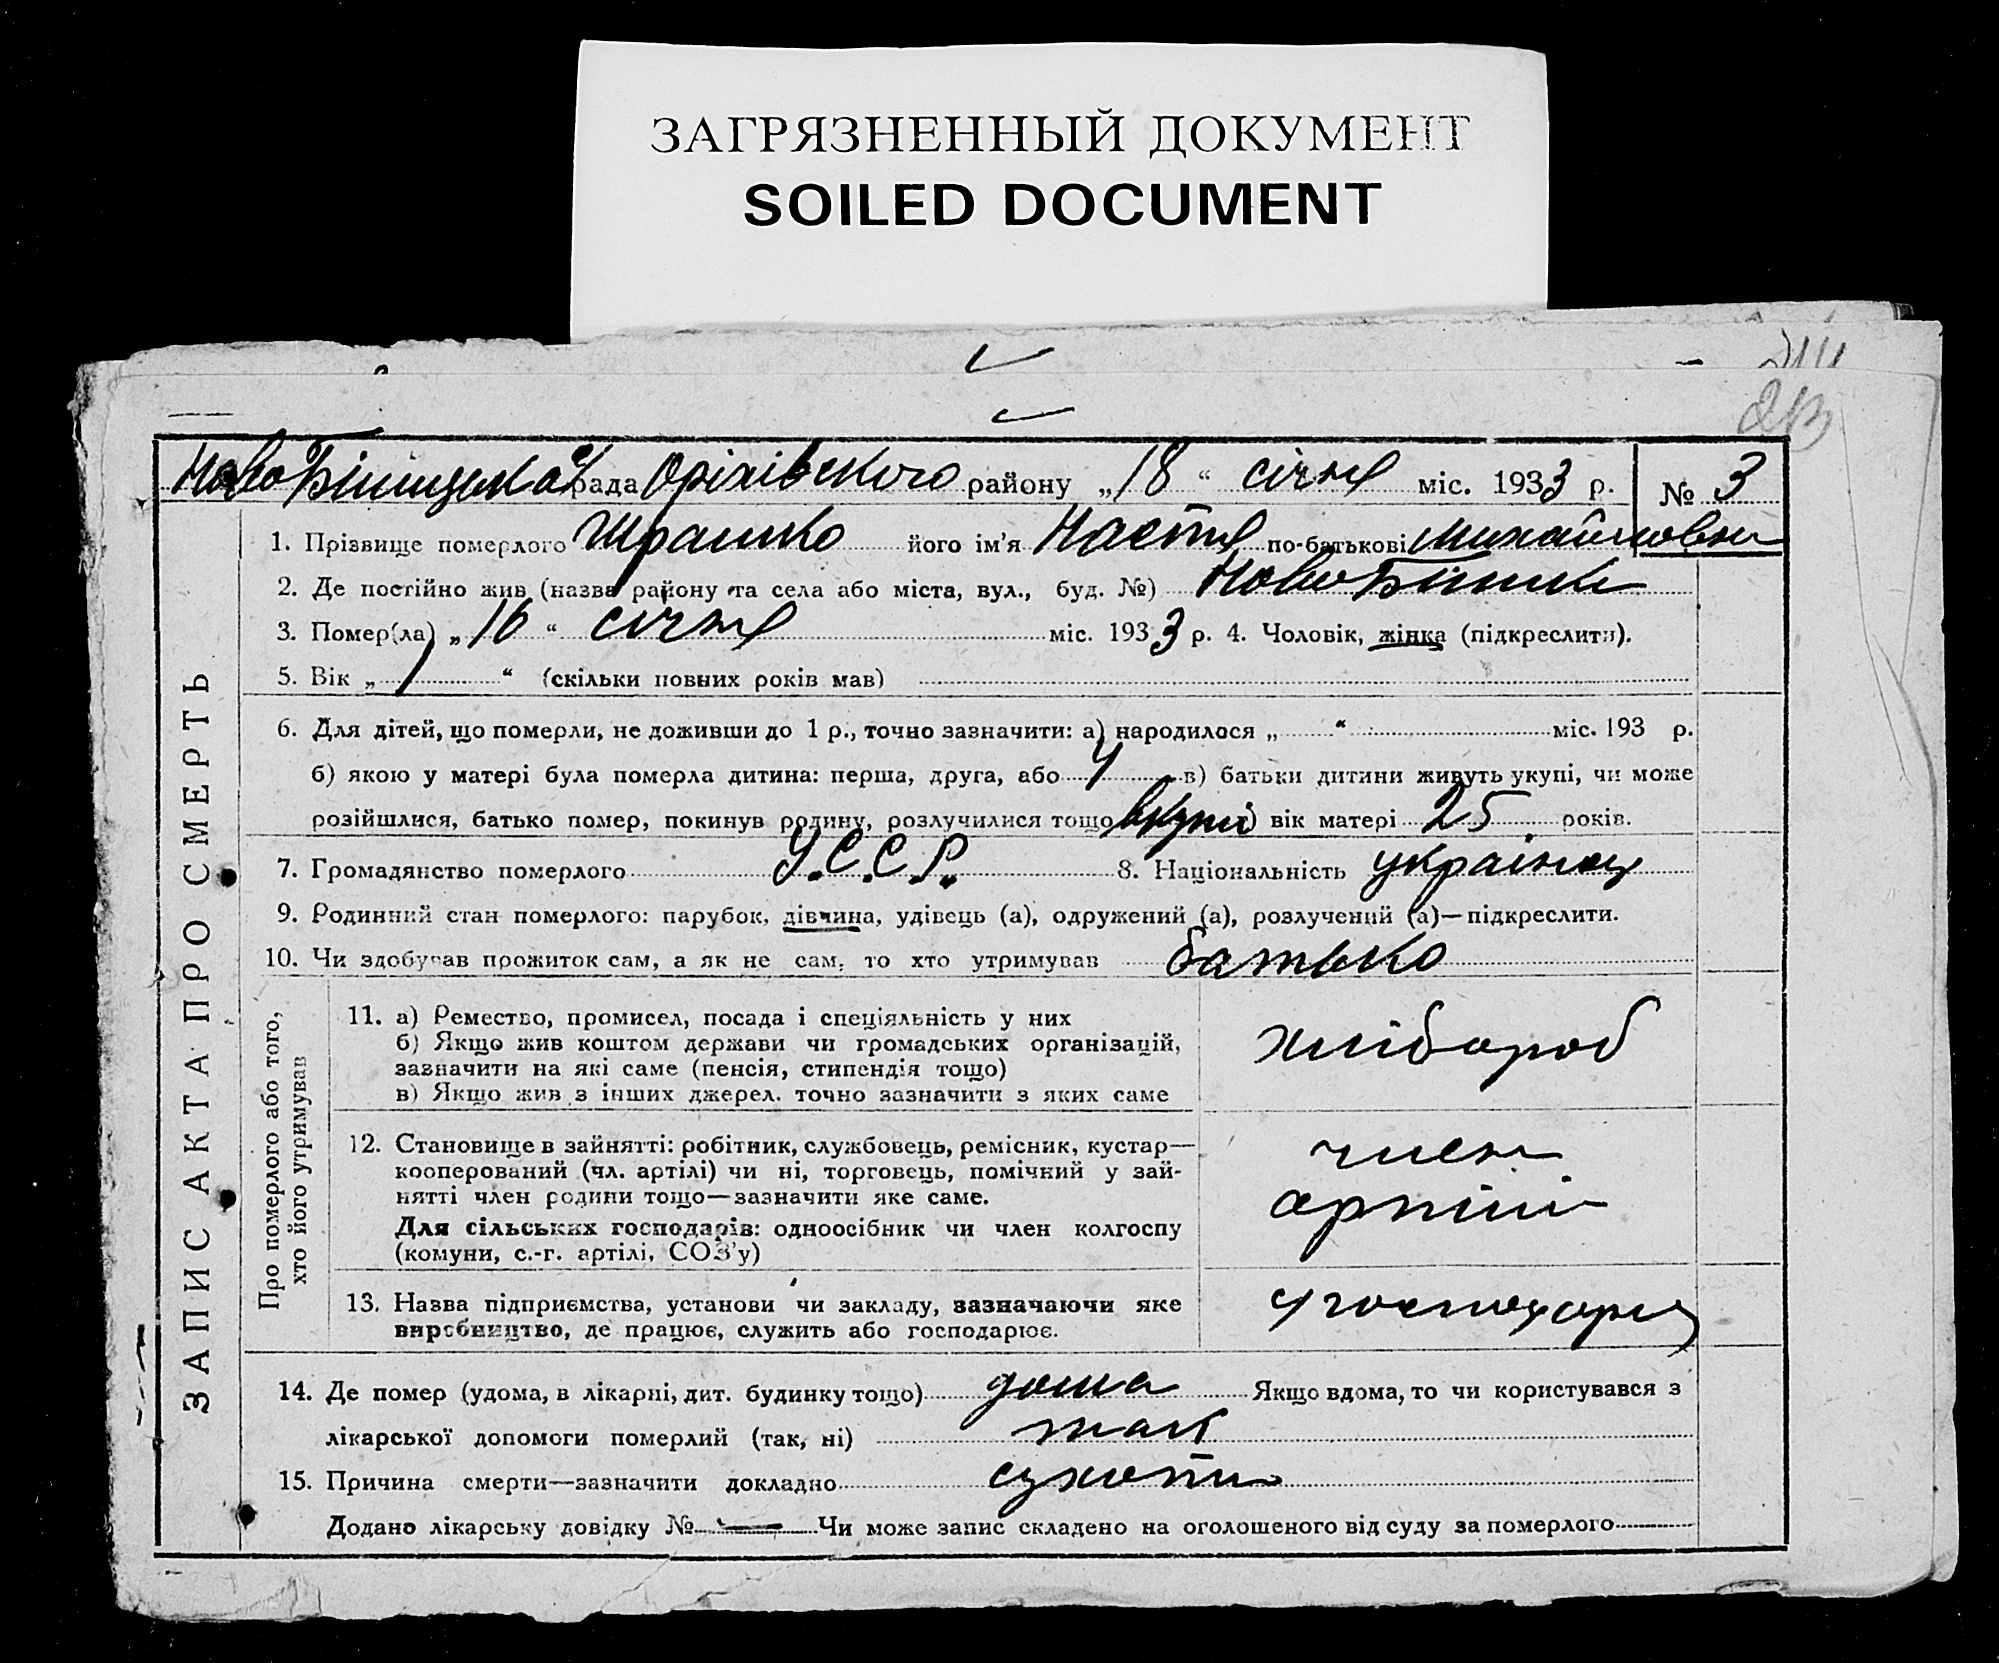 ЗАГРЯЗНЕННЫЙ ДОКУМЕНТ
SOILED DOCUMENT
213
рада Оріхівського району „18“ січня міс. 1933 р. № 3
1. Прізвище померлого його ім'я Настя по-батькові Михайловна
2. Де постійно жив (назва району та села або міста, вул., буд. №)
3. Помер(ла) „16“ січня міс. 1933 р. 4. Чоловік, жінка (підкреслити).
5. Вік „1“ (скільки повних років мав)
6. Для дітей, що померли, не доживши до 1 р., точно зазначити: а) народилося „ “ міс. 193 р.
б) якою у матері була померла дитина: перша, друга, або 4 в) батьки дитини живуть укупі, чи може
розійшлися, батько помер, покинув родину, розлучилися тощо вкупі) вік матері 25 років.
7. Громадянство померлого У.С.С.Р. 8. Національність українец
9. Родинний стан померлого: парубок, дівчина, удівець (а), одружений (а), розлучений (а)—підкреслити.
10. Чи здобував прожиток сам, а як не сам, то хто утримував батько
ЗАПИС АКТА ПРО СМЕРТЬ
Про померлого або того,
хто його утримував
11. а) Ремество, промисел, посада і спеціяльність у них
б) Якщо жив коштом держави чи громадських організацій,
зазначити на які саме (пенсія, стипендія тощо)
в) Якщо жив з інших джерел. точно зазначити з яких саме
хлібороб
12. Становище в зайнятті: робітник, службовець, ремісник, кустар—
кооперований (чл. артілі) чи ні, торговець, помічний у зай-
нятті член родини тощо—зазначити яке саме.
Для сільських господарів: одноосібник чи член колгоспу
(комуни, с.-г. артілі, СОЗ'у)
член
артілі
13. Назва підприємства, установи чи закладу, зазначаючи яке
виробництво, де працює, служить або господарює.
14. Де помер (удома, в лікарні, дит. будинку тощо) дома Якщо вдома, то чи користувався з
лікарської допомоги померлий (так, ні) так
15. Причина смерти—зазначити докладно сухоти
Додано лікарську довідку № — Чи може запис складено на оголошеного від суду за померлого